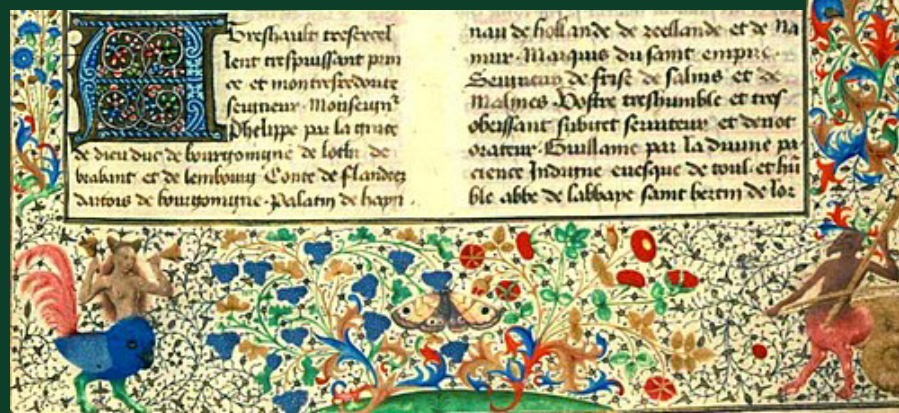 A treshault tresexcel
lent trespuissant prin
ce et montresredoubte
seigneur Monseignr
Phelippe par la grace
de dieu duc de bourgoingne de loth. de
brabant et de lembourg Conte de flandres
dartois de bourgoingne. Palatin de hayn.
nau de hollande de zeellande et de Na
mur. Marquis du saint empire.
Seigneur de frise de salins et de
Malines. Vostre treshumble et tres
obeissant subiect seruiteur et deuot
orateur. Guillame par la diuine pa
cience Indigne euesque de toul. et hu
ble abbe de labbaye saint bertin de lor